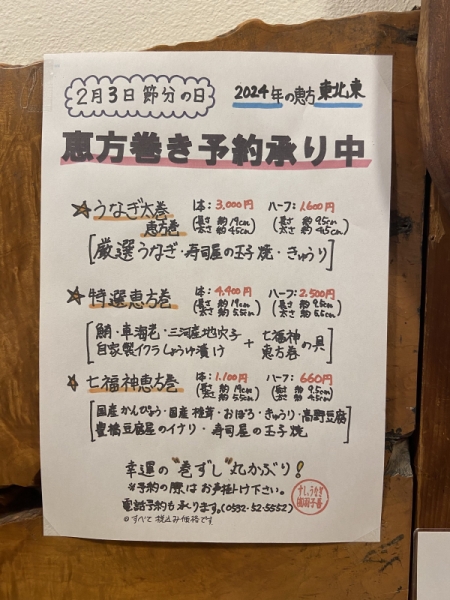 2月3日 節分の日
2024年の恵方 東北東
恵方巻き予約承り中
☆うなぎ太巻 1本:3,000円 ハーフ:1,600円
恵方巻 (長さ 約19cm 太さ 約4.5cm) (長さ 約9.5cm 太さ 約4.5cm)
[厳選うなぎ・寿司屋の玉子焼・きゅうり]
☆特選恵方巻 1本:4,400円 ハーフ:2,500円
(長さ 約19cm 太さ 約5.5cm) (長さ 約9.5cm 太さ 約5.5cm)
[鮪・車海老・三河産地穴子 + 七福神
自家製イクラしょうゆ漬け 恵方巻の具]
☆七福神恵方巻 1本:1,100円 ハーフ:660円
(長さ 約19cm 太さ 約5.5cm) (長さ 約9.5cm 太さ 約4.5cm)
[国産かんぴょう・国産椎茸・おぼろ・きゅうり・高野豆腐
豊橋豆腐屋のイナリ・寿司屋の玉子焼]
幸運の"巻ずし"丸かぶり!
※予約の際はお声掛け下さい。
電話予約も承ります。(0532-52-5552)
◎すべて税込み価格です
すし、うなぎ